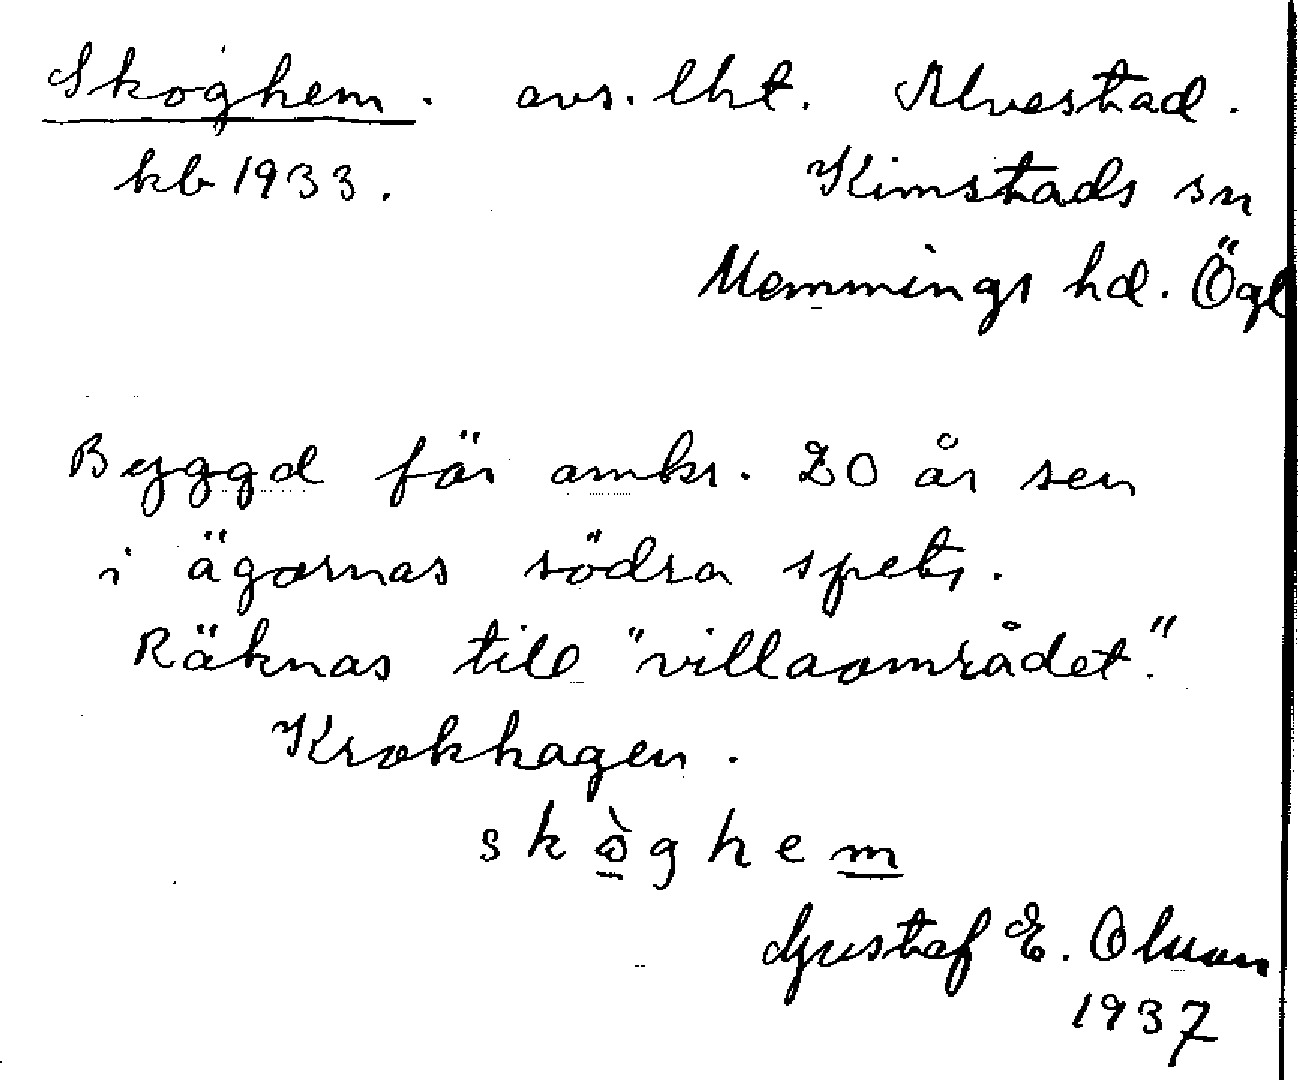 Skoghem. avs. lht. Alvestad.
kb 1933. Kimstads sn
Memmings hd. Ögl
Byggd för omkr. 20 år sen
i ägornas södra spets.
Räknas till "villaområdet."
Krokhagen.
skòghem
Gustaf E. Olsson
1937